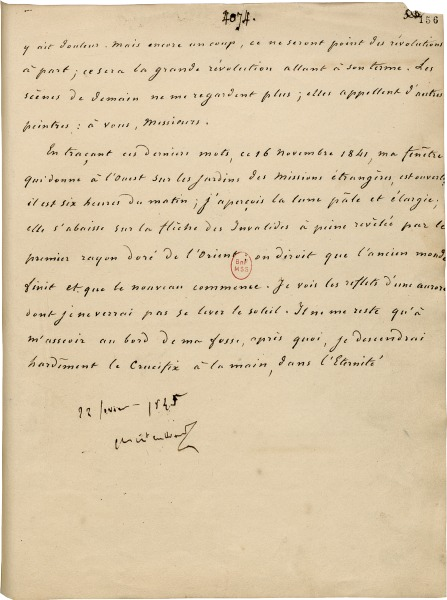 4074.
156
y ait douleur. Mais encore un coup, ce ne seront point des révolutions
à part; ce sera la grande révolution allant à son terme. Les
scènes de demain ne me regardent plus; elles appellent d'autres
peintres: à vous, Messieurs.
En traçant ces derniers mots, ce 16 Novembre 1841, ma fenêtre
qui donne à l'Ouest sur les Jardins des Missions étrangères, est ouverte,
il est six heures du matin; j'aperçois la lune pâle et élargie;
elle s'abaisse sur la flèche des Invalides à peine révélée par le
premier rayon doré de l'Orient: on diroit que l'ancien monde
finit et que le nouveau commence. Je vois les reflets d'une aurore
dont je ne verrai pas se lever le soleil. Il ne me reste qu'à
m'asseoir au bord de ma fosse, après quoi, je descendrai
hardiment le Crucifix à la main, dans l'Eternité
BnF
MSS
22 1845